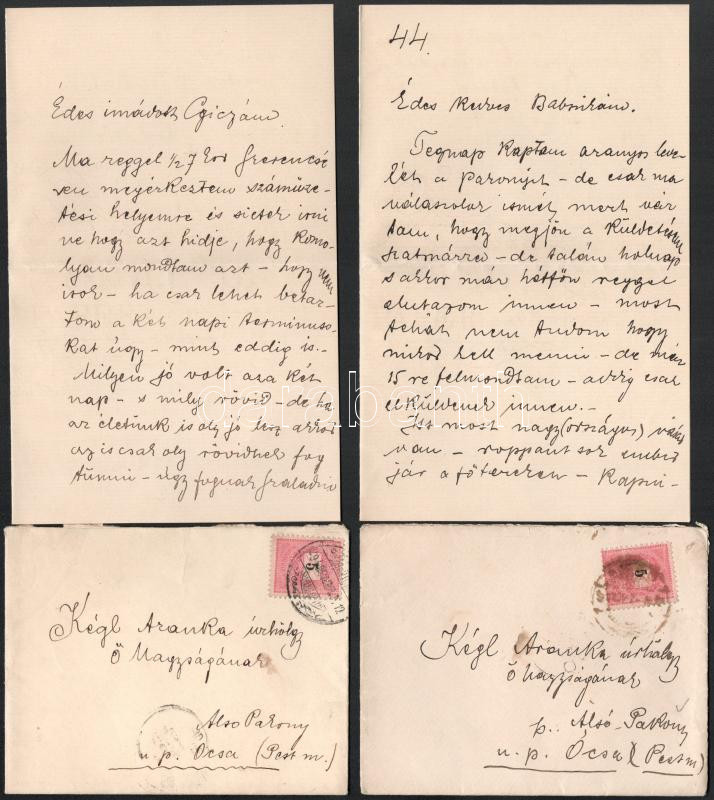 Édes imádott Cziczám
Ma reggel ½7 kor szerencsé
sen megérkeztem száműze-
tési helyemre és sietek irni
nehogy azt hidje, hogy komo-
lyan mondtam azt – hogy nem
irok – ha csak lehet betar-
tom a két napi terminuso-
kat úgy – mint eddig is.–
Milyen jó volt az a két
nap – s mily rövid – de ha
az életünk is oly jó lesz akkor
az is csak oly rövidnek fog
tűnni – úgy fognak szaladni
44.
Édes kedves Babuskám.
Tegnap kaptam aranyos leve-
lét a Pakonyit – de csak ma
válaszolok ismét mert vár
tam, hogy megjön a küldetésem
Szatmárra – de talán holnap
s akkor már hétfőn reggel
elutazom innen – most
tehát nem tudom hogy
mikor kell menni – de már
15 re felmondtam – addig csak
elküldenek innen.–
Itt most nagy (országos) vásár
van – roppant sok ember
jár a főtereken – kapni-
5
Kégl Aranka úrhölgy
Ő Nagyságának
Alsó Pakony
u. p. Ócsa (Pest m.)
5
Kégl Aranka úrhölgy
Ő Nagyságának
p. Alsó-Pakony
u. p. Ócsa (Pest m)
darabanth